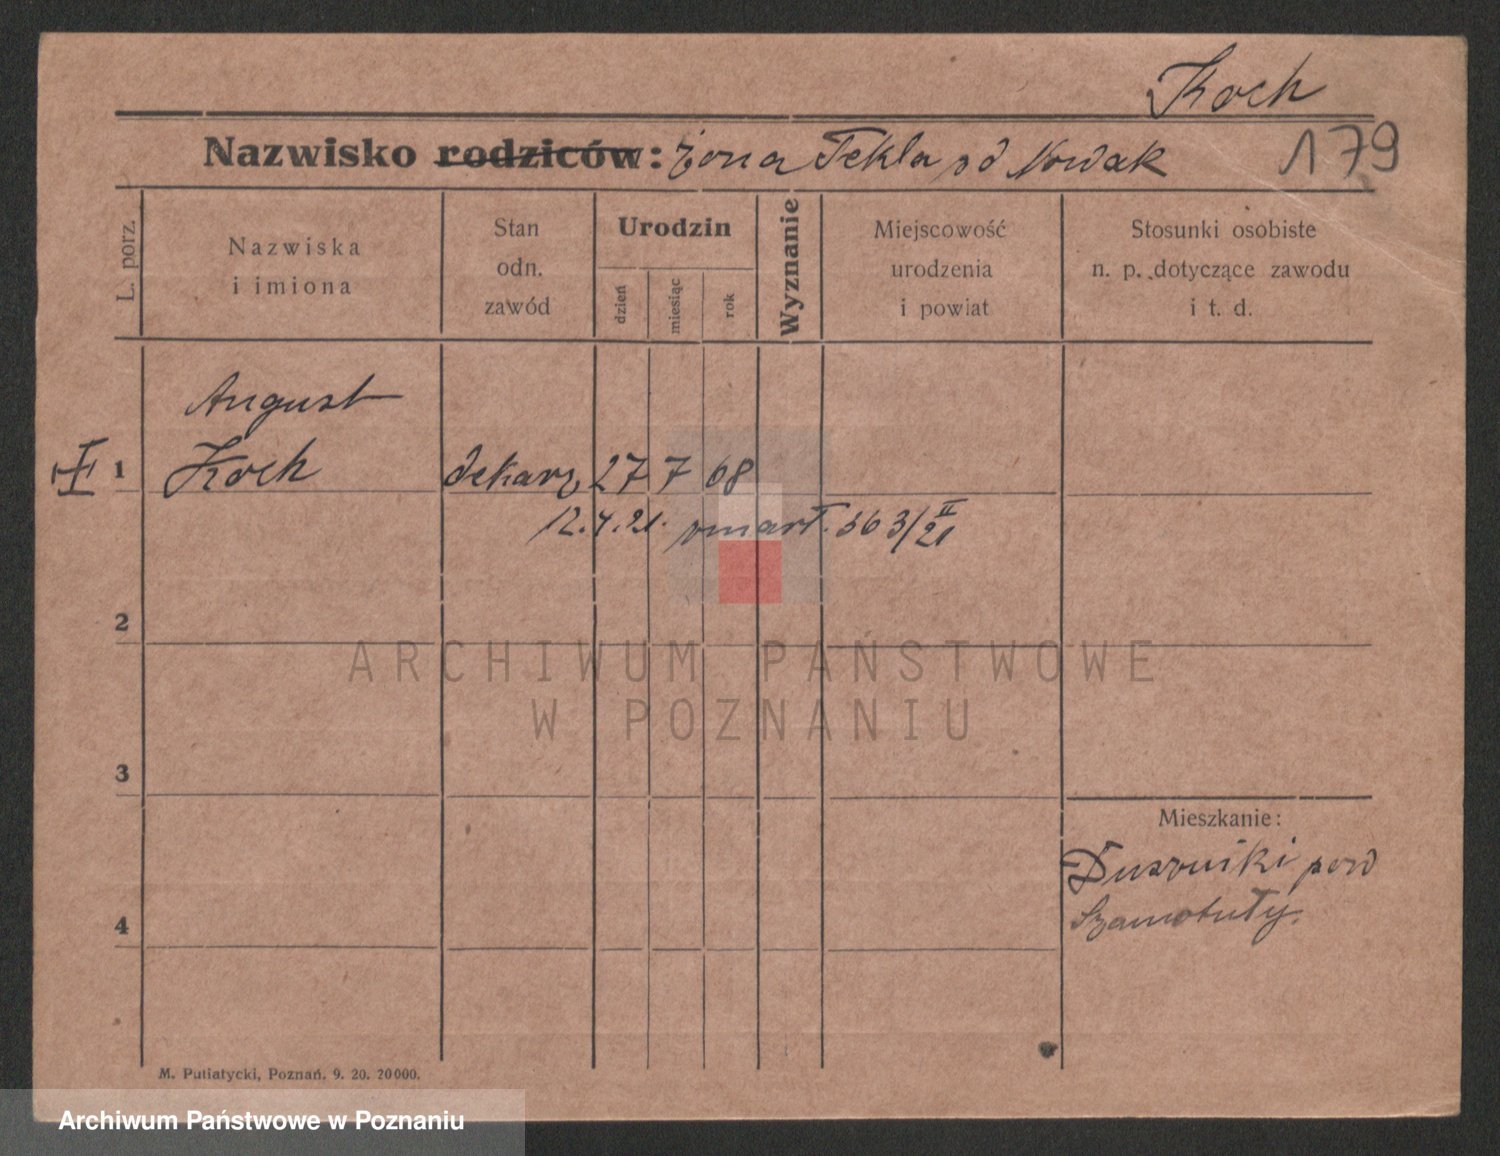 Koch
179
Nazwisko rodziców: żona Tekla od Nowak
L. porz.
Nazwiska
i imiona
Stan
odn.
zawód
Urodzin
dzień
miesiąc
rok
Wyznanie
Miejscowość
urodzenia
i powiat
Stosunki osobiste
n. p. dotyczące zawodu
i t. d.
August
1 Koch dekarz 27 7 68
12.4.21. zmarł. 563/II 21
2
3
4
Mieszkanie:
Duszniki pow
Szamotuły.
M. Putiatycki, Poznań. 9. 20. 20000.
ARCHIWUM PAŃSTWOWE
W POZNANIU
Archiwum Państwowe w Poznaniu